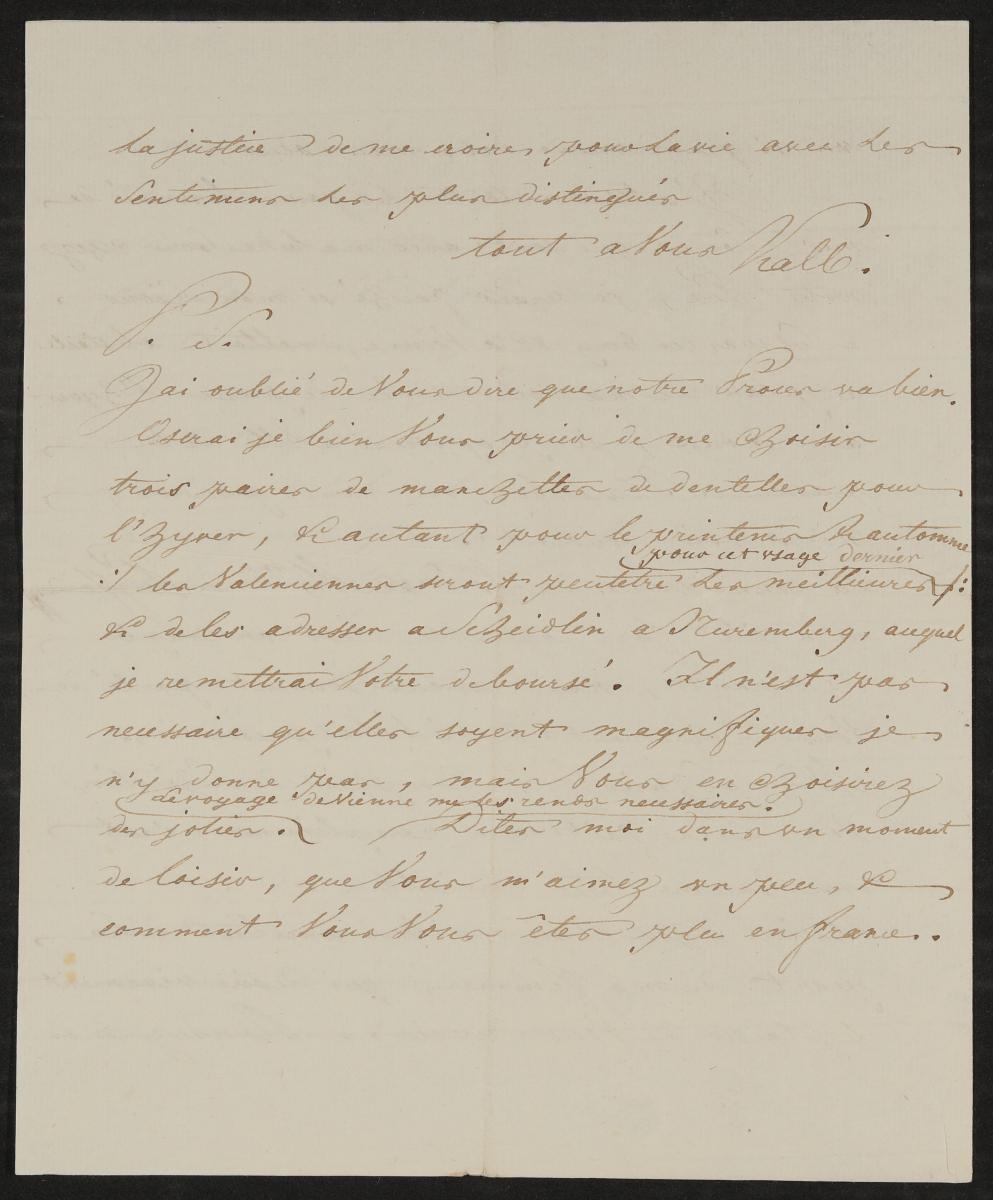 La justice de me croire, pour la vie avec Les
Sentimens Les plus distingués
tout a Vous Kalb.
P. S.
J'ai oublié de Vous dire que notre Proces va bien.
Oserai je bien Vous prier de me choisir
trois paires de manchettes de dentelles pour
l'hyver, & autant pour le printems & automne
pour cet usage dernier
:/ les Valenciennes seront peutetre Les meilleures /:
& de les adresser a Scheidlin a Nuremberg, auquel
je remettrai Votre deboursé. Il n'est pas
necessaire qu'elles soyent magnifiques je
n'y donne pas, mais Vous en choisirez
Le voyage de Vienne me les rends necessaires.
des jolies. Dites moi dans un moment
de loisir, que Vous m'aimez un peu, &
comment Vous Vous êtes plu en france.